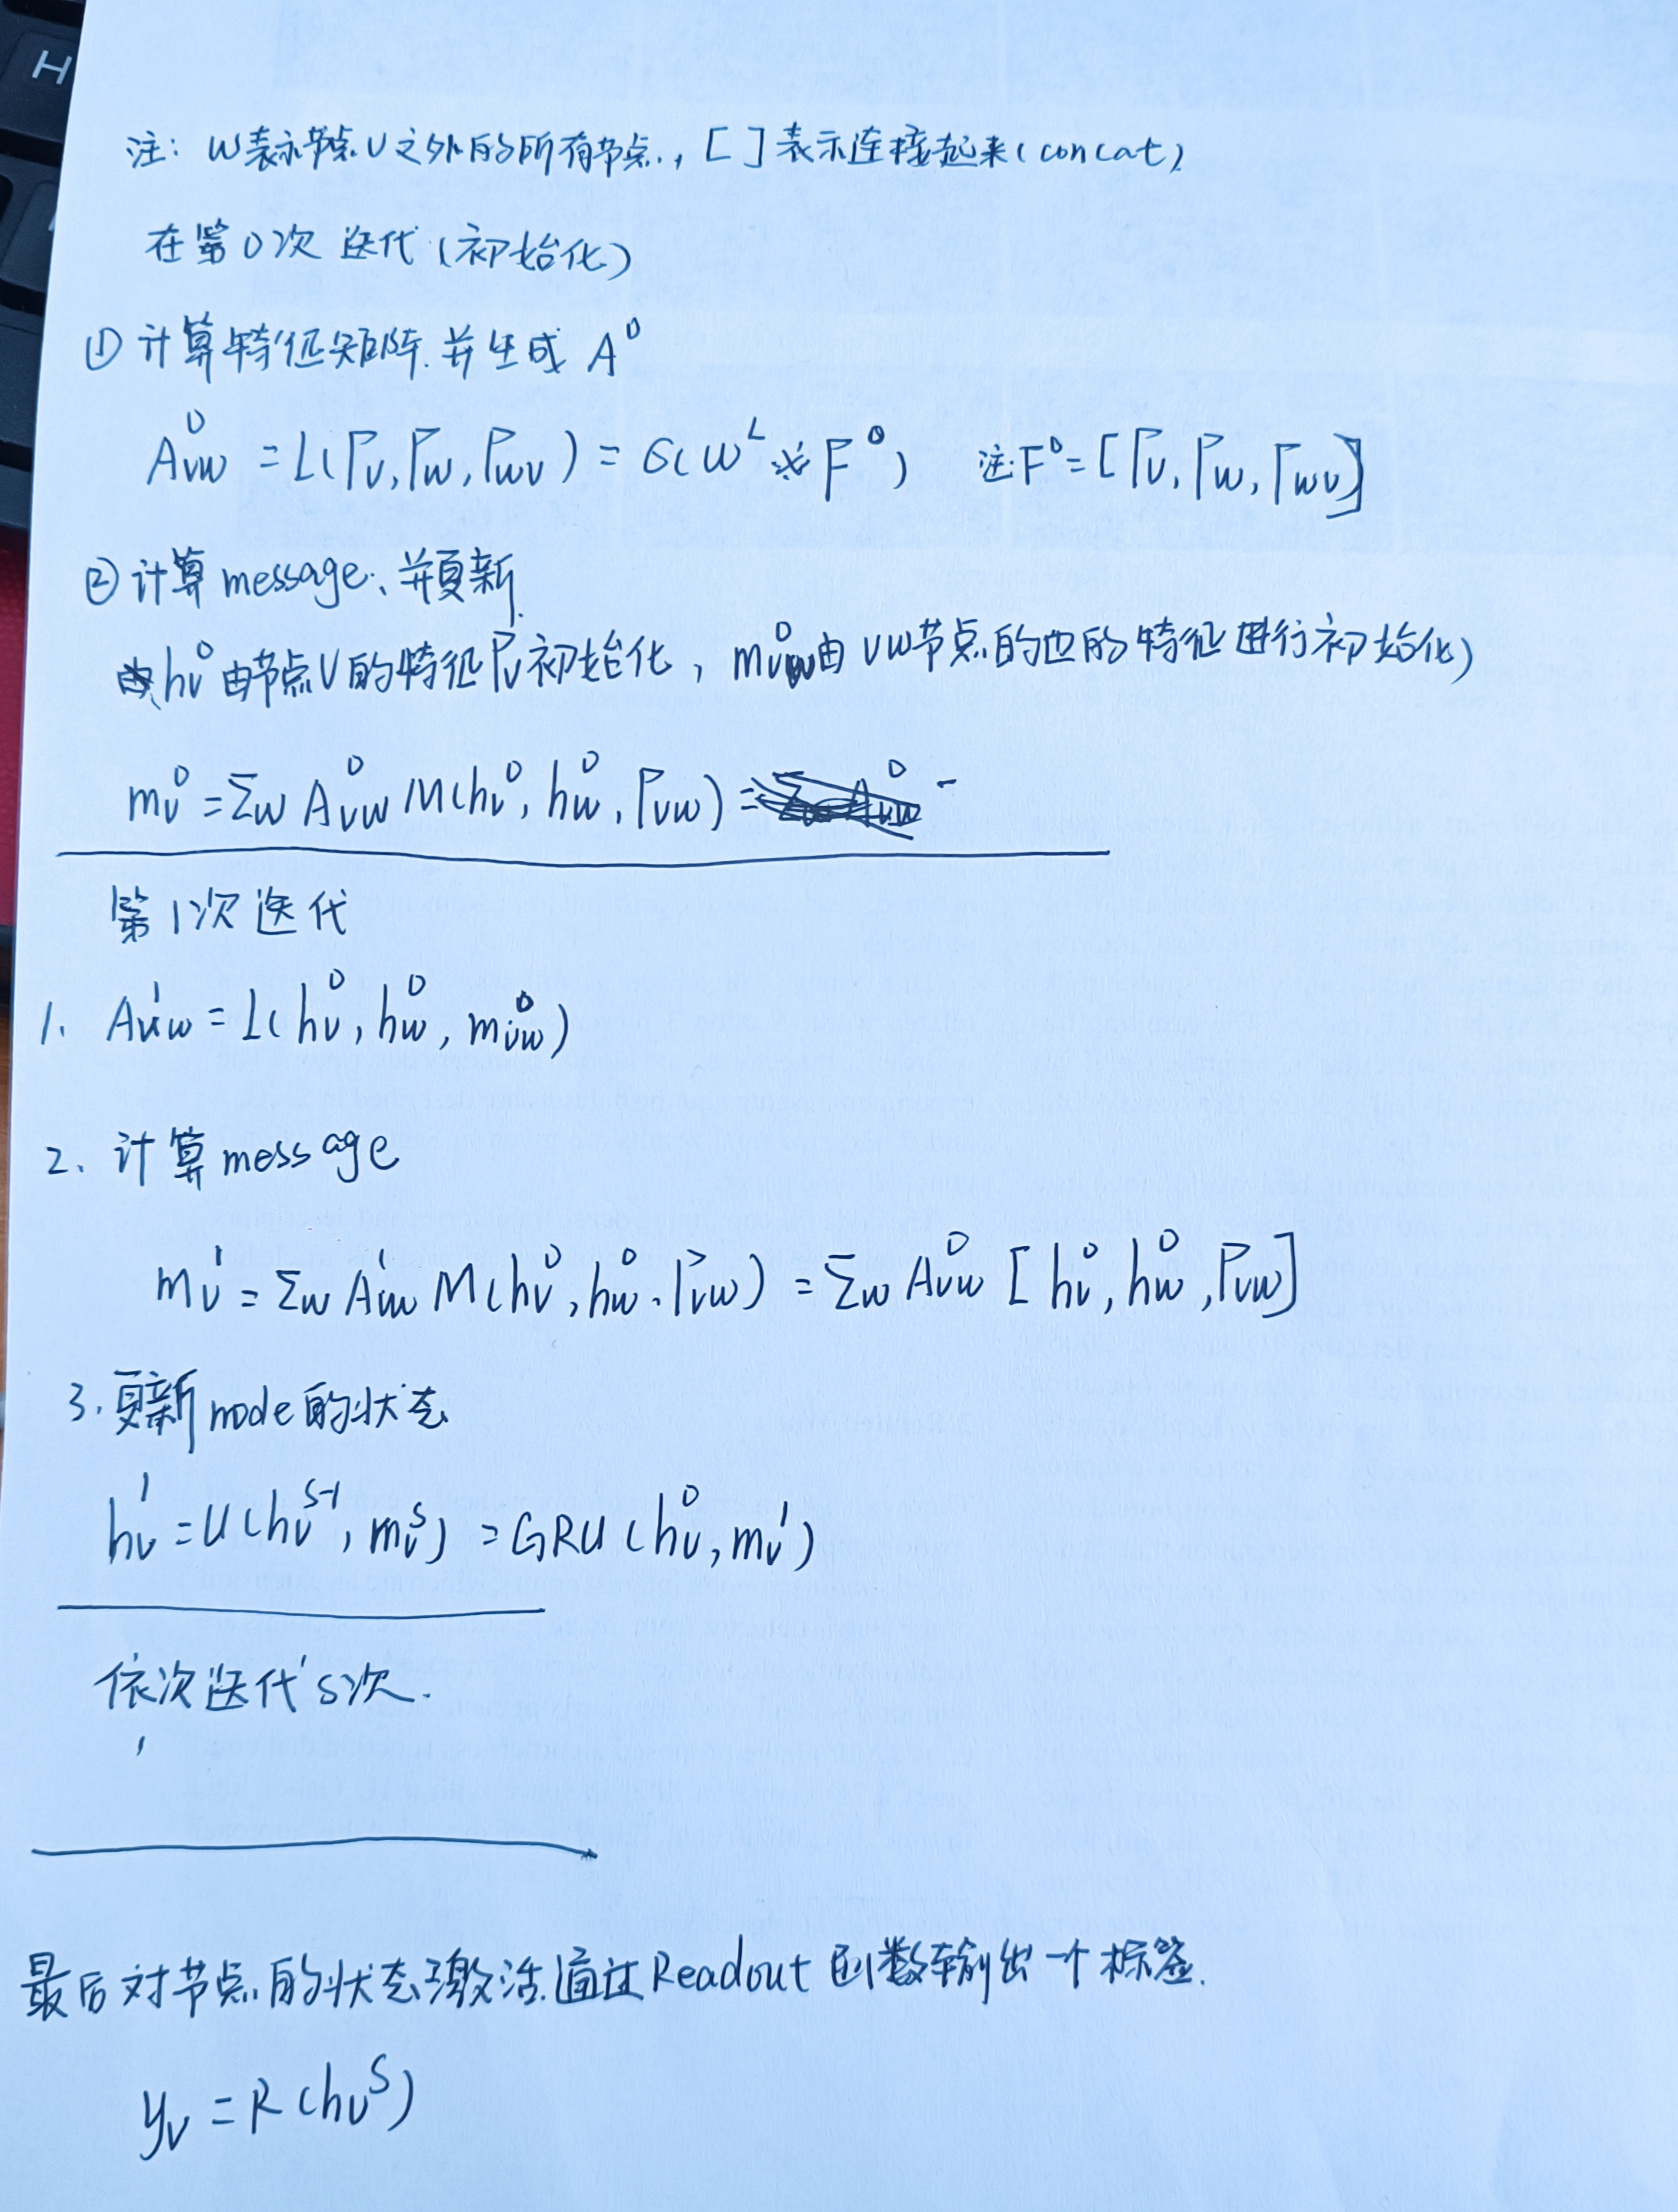 H
注: W表示节点V之外的所有节点, [ ]表示连接起来(concat)
在第0次迭代(初始化)
① 计算特征矩阵.并生成 A⁰
A⁰vw = L(Γv, Γw, Γwv) = σ(W^L * F⁰) 注:F⁰=[Γv, Γw, Γwv]
② 计算message、并更新
hv⁰由节点V的特征Γv初始化, mvw⁰由VW节点的边的特征进行初始化)
mv⁰ = Σw Avw⁰ M(hv⁰, hw⁰, Γvw)
第1次迭代
1. Avw¹ = L(hv⁰, hw⁰, mvw⁰)
2、计算message
mv¹ = Σw Avw¹ M(hv⁰, hw⁰, Γvw) = Σw Avw⁰ [hv⁰, hw⁰, Γvw]
3.更新node的状态
hv¹ = U(hv^S-1, mv^S) = GRU(hv⁰, mv¹)
依次迭代S次.
最后对节点的状态激活.通过Readout函数输出一个标签.
yv = R(hv^S)